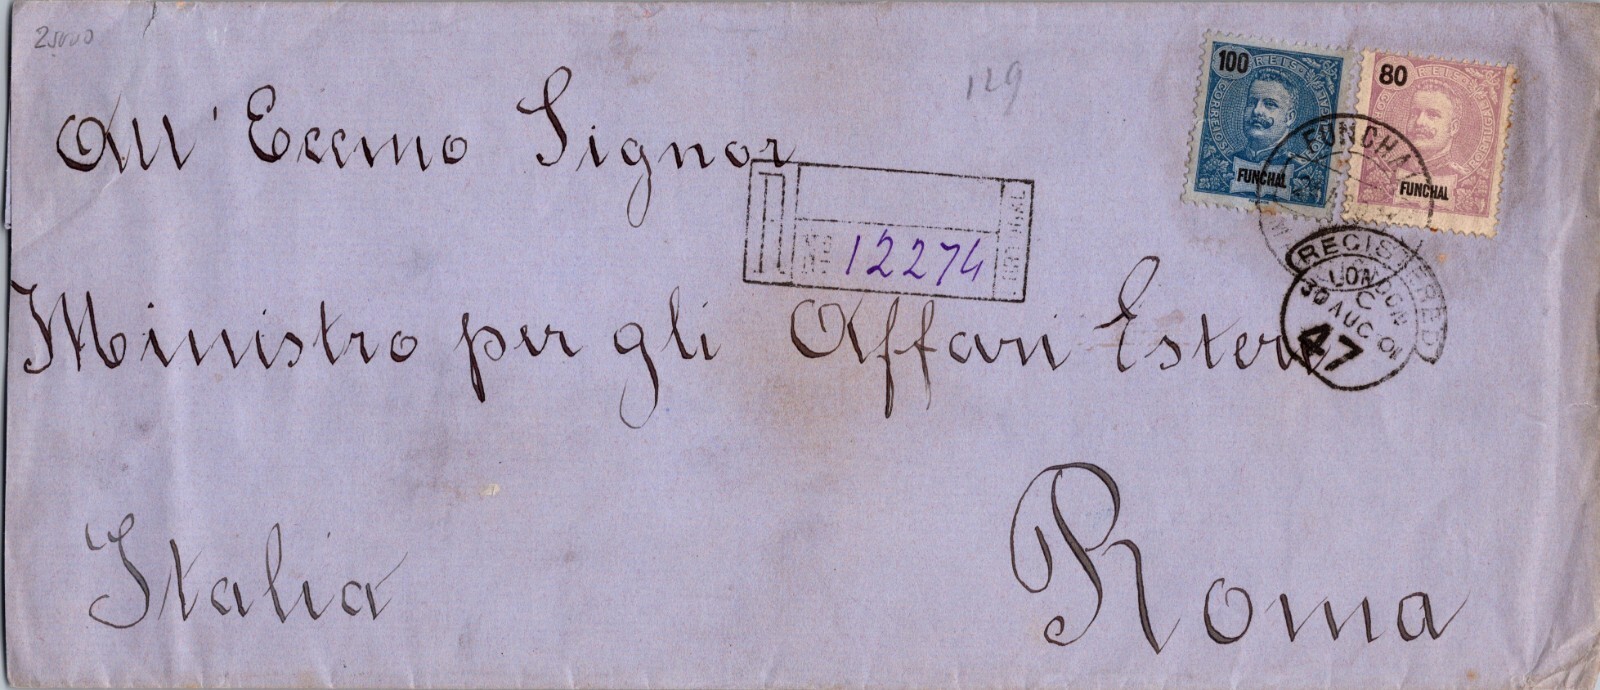 25000
129
100 REIS
PORTUGAL CORREIOS
FUNCHAL
80 REIS
PORTUGAL CORREIOS
FUNCHAL
FUNCHAL
All' Eccmo Signor
R
No 12274
REGISTERED
LONDON
C
30 AUG 01
47
Ministro per gli Affari Esteri
Italia Roma